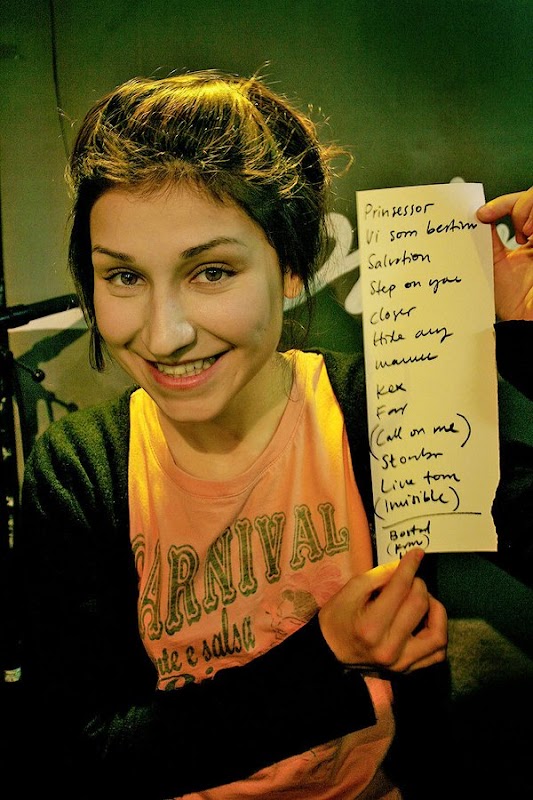 Prinsessor
Vi som bestäm
Salvation
Step on you
Closer
Hide any
Kex
Far
(Call on me)
Live tom
(Invisible)
Bastad
CARNIVAL
te e salsa